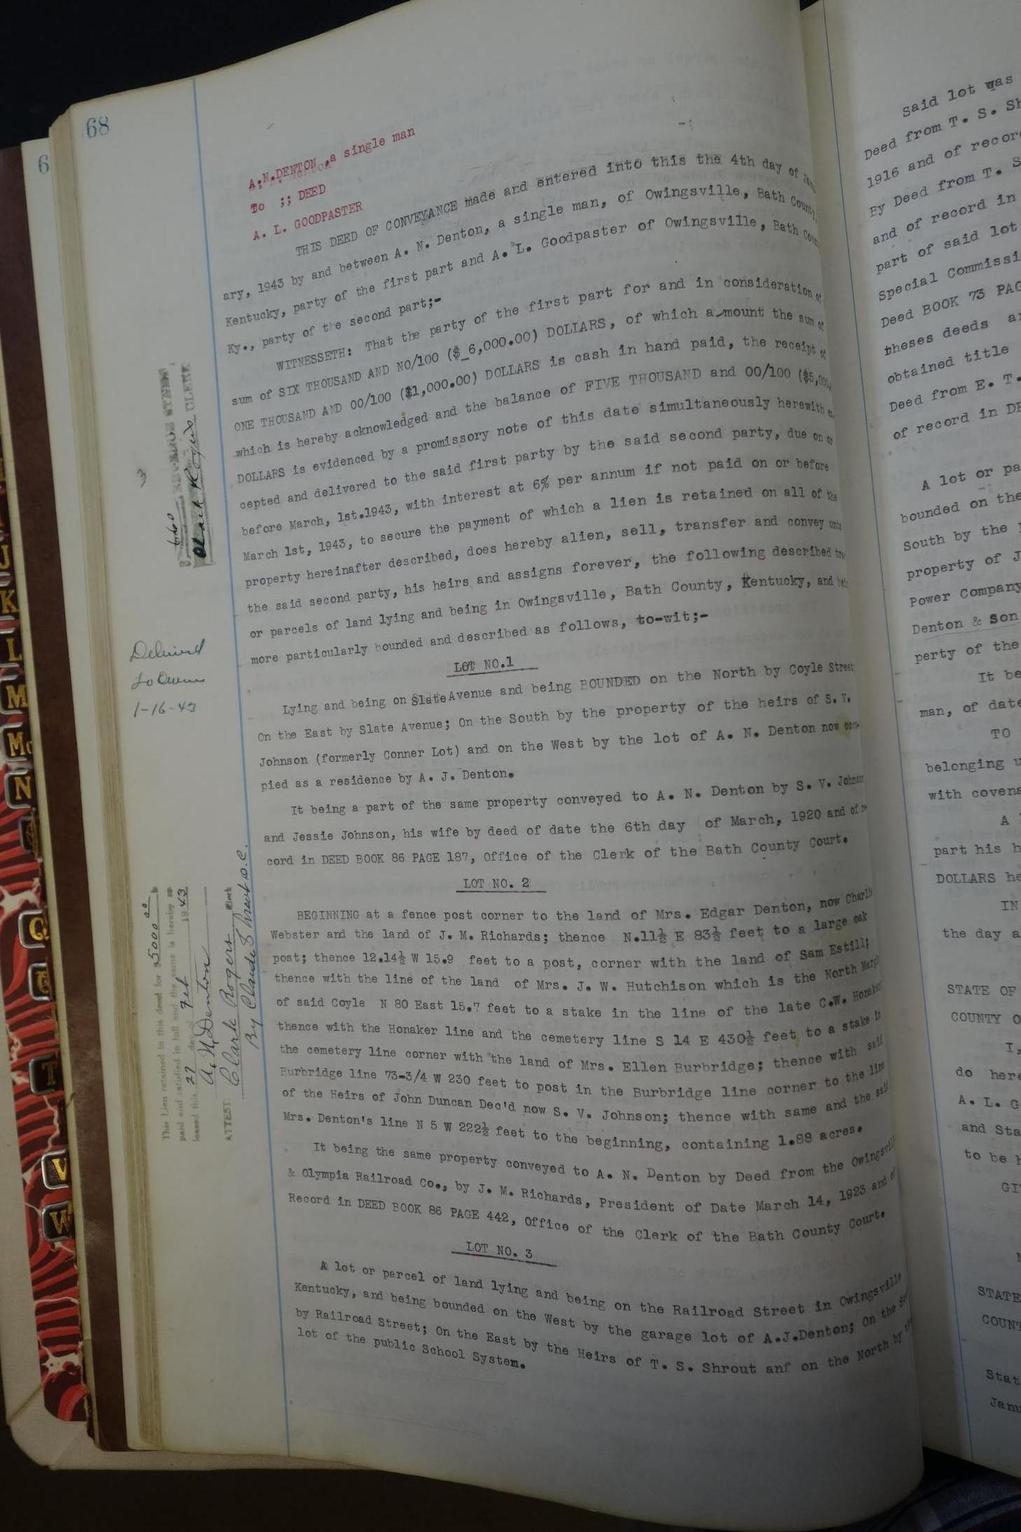 68
6
A. N. DENTON ,a single man
To ;; DEED
A. L. GOODPASTER
THIS DEED OF CONVEYANCE made and entered into this the 4th day of
ary, 1943 by and between A. N. Denton, a single man, of Owingsville, Bath County,
Kentucky, party of the first part and A. L. Goodpaster of Owingsville, Bath
Ky., party of the second part;-
WITNESSETH: That the party of the first part for and in consideration of
sum of SIX THOUSAND AND NO/100 ($_6,000.00) DOLLARS, of which a mount the sum of
ONE THOUSAND AND 00/100 ($1,000.00) DOLLARS is cash in hand paid, the receipt of
which is hereby acknowledged and the balance of FIVE THOUSAND and 00/100 ($5,
DOLLARS is evidenced by a promissory note of this date simultaneously herewith
cepted and delivered to the said first party by the said second party, due on or
before March, 1st.1943, with interest at 6% per annum if not paid on or before
March 1st, 1943, to secure the payment of which a lien is retained on all of the
property hereinafter described, does hereby alien, sell, transfer and convey
the said second party, his heirs and assigns forever, the following described
or parcels of land lying and being in Owingsville, Bath County, Kentucky, and
more particularly bounded and described as follows, to-wit;-
LOT NO.1
Lying and being on Slate Avenue and being BOUNDED on the North by Coyle Street
On the East by Slate Avenue; On the South by the property of the heirs of S. V.
Johnson (formerly Conner Lot) and on the West by the lot of A. N. Denton now
pied as a residence by A. J. Denton.
It being a part of the same property conveyed to A. N. Denton by S. V. Johnson
and Jessie Johnson, his wife by deed of date the 6th day of March, 1920 and of
cord in DEED BOOK 86 PAGE 187, Office of the Clerk of the Bath County Court.
LOT NO. 2
BEGINNING at a fence post corner to the land of Mrs. Edgar Denton, now Charly
Webster and the land of J. M. Richards; thence N.11½ E 83½ feet to a large oak
post; thence 12.14½ W 15.9 feet to a post, corner with the land of Sam Estill;
thence with the line of the land of Mrs. J. W. Hutchison which is the North
of said Coyle N 80 East 15.7 feet to a stake in the line of the late C.W. Honaker
thence with the Honaker line and the cemetery line S 14 E 430½ feet to a stake in
the cemetery line corner with the land of Mrs. Ellen Burbridge; thence with said
Burbridge line 73-3/4 W 230 feet to post in the Burbridge line corner to the line
of the Heirs of John Duncan Dec'd now S. V. Johnson; thence with same and the said
Mrs. Denton's line N 5 W 222½ feet to the beginning, containing 1.88 acres.
It being the same property conveyed to A. N. Denton by Deed from the Owingsville
& Olympia Railroad Co., by J. M. Richards, President of Date March 14, 1923 and of
Record in DEED BOOK 86 PAGE 442, Office of the Clerk of the Bath County Court.
LOT NO. 3
A lot or parcel of land lying and being on the Railroad Street in Owingsville
Kentucky, and being bounded on the West by the garage lot of A.J.Denton; On the
by Railroad Street; On the East by the Heirs of T. S. Shrout anf on the North by the
lot of the public School System.
3
6.60
Clark Rogers CLERK
Delivered
to Owner
1-16-43
This Lien retained in this deed for $5000.00
paid and satisfied in full and the same is hereby re-
leased this 27 day of Feb 1943
A. N. Denton
ATTEST: Clark Rogers Clerk
By Claude Shrout D.C.
K
L
M
Mc
N
Q
T
V
W
Said lot was
Deed from T. S. Sh
1916 and of recor
By Deed from T. S
and of record in
part of said lot
Special Commissi
Deed BOOK 73 PAG
theses deeds a
obtained title
Deed from E. T.
of record in DE
A lot or pa
bounded on the
South by the
property of J
Power Company
Denton & Son
perty of the
It be
man, of date
TO
belonging u
with covena
A
part his h
DOLLARS he
IN
the day a
STATE OF
COUNTY O
I,
do here
A. L. G
and Sta
to be
GI
STATE
COUNT
Stat
Janu